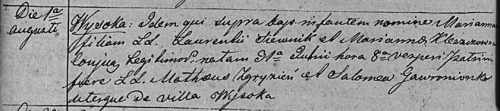 Die 1ma
augusti
Wysoka: Idem qui supra bap. infantem nomine Marianna
filiam LL. Laurentii Siewnik et Marianna Kleczkow
Conjug. Legitimor. natam 31a Julii hora 8a vesperi patrini
fuere LL. Mathæus Zgryzień et Salomea Gawronionk
uterque de villa Wysoka